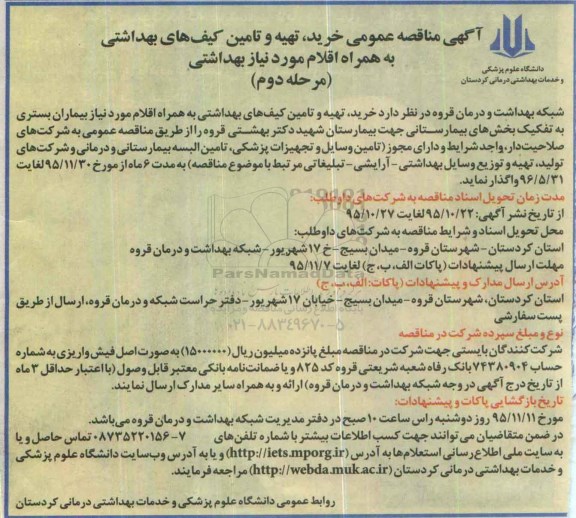 آگهی مناقصه عمومی خرید، تهیه و تامین کیف‌های بهداشتی
به همراه اقلام مورد نیاز بهداشتی
(مرحله دوم)
دانشگاه علوم پزشکی
و خدمات بهداشتی درمانی کردستان
شبکه بهداشت و درمان قروه در نظر دارد خرید، تهیه و تامین کیف‌های بهداشتی به همراه اقلام مورد نیاز بیماران بستری
به تفکیک بخش‌های بیمارستانی جهت بیمارستان شهید دکتر بهشتی قروه را از طریق مناقصه عمومی به شرکت‌های
صلاحیت‌دار، واجد شرایط و دارای مجوز (تامین وسایل و تجهیزات پزشکی، تامین البسه بیمارستانی و درمانی و شرکت‌های
تولید، تهیه و توزیع وسایل بهداشتی - آرایشی - تبلیغاتی مرتبط با موضوع مناقصه) به مدت ۶ ماه از مورخ ۹۵/۱۱/۳۰ لغایت
۹۶/۵/۳۱ واگذار نماید.
مدت زمان تحویل اسناد مناقصه به شرکت‌های داوطلب:
از تاریخ نشر آگهی: ۹۵/۱۰/۲۲ لغایت ۹۵/۱۰/۲۷
محل تحویل اسناد و شرایط مناقصه به شرکت‌های داوطلب:
استان کردستان - شهرستان قروه - میدان بسیج - خ ۱۷ شهریور - شبکه بهداشت و درمان قروه
مهلت ارسال پیشنهادات (پاکات الف، ب، ج) لغایت ۹۵/۱۱/۷
آدرس ارسال مدارک و پیشنهادات (پاکات: الف، ب، ج)
استان کردستان، شهرستان قروه - میدان بسیج - خیابان ۱۷ شهریور - دفتر حراست شبکه و درمان قروه، ارسال از طریق
پست سفارشی
نوع و مبلغ سپرده شرکت در مناقصه
شرکت‌کنندگان بایستی جهت شرکت در مناقصه مبلغ پانزده میلیون ریال (۱۵۰۰۰۰۰۰) به صورت اصل فیش واریزی به شماره
حساب ۷۴۳۸۰۹۰۴ بانک رفاه شعبه شریعتی قروه کد ۸۲۵ و یا ضمانت‌نامه بانکی معتبر قابل وصول (با اعتبار حداقل ۳ ماه
از تاریخ درج آگهی در وجه شبکه بهداشت و درمان قروه) ارائه و به همراه سایر مدارک ارسال نمایند.
تاریخ بازگشایی پاکات و پیشنهادات:
مورخ ۹۵/۱۱/۱۱ روز دوشنبه راس ساعت ۱۰ صبح در دفتر مدیریت شبکه بهداشت و درمان قروه می‌باشد.
در ضمن متقاضیان می‌توانند جهت کسب اطلاعات بیشتر با شماره تلفن‌های ۷-۰۸۷۳۵۲۲۰۱۵۶ تماس حاصل و یا
به سایت ملی اطلاع‌رسانی استعلام‌ها به آدرس (http://iets.mporg.ir) و یا به آدرس وب‌سایت دانشگاه علوم پزشکی
و خدمات بهداشتی درمانی کردستان (http://webda.muk.ac.ir) مراجعه فرمایند.
روابط عمومی دانشگاه علوم پزشکی و خدمات بهداشتی درمانی کردستان
ParsNamadData
۰۲۱-۸۸۳۴۹۶۷۰-۵